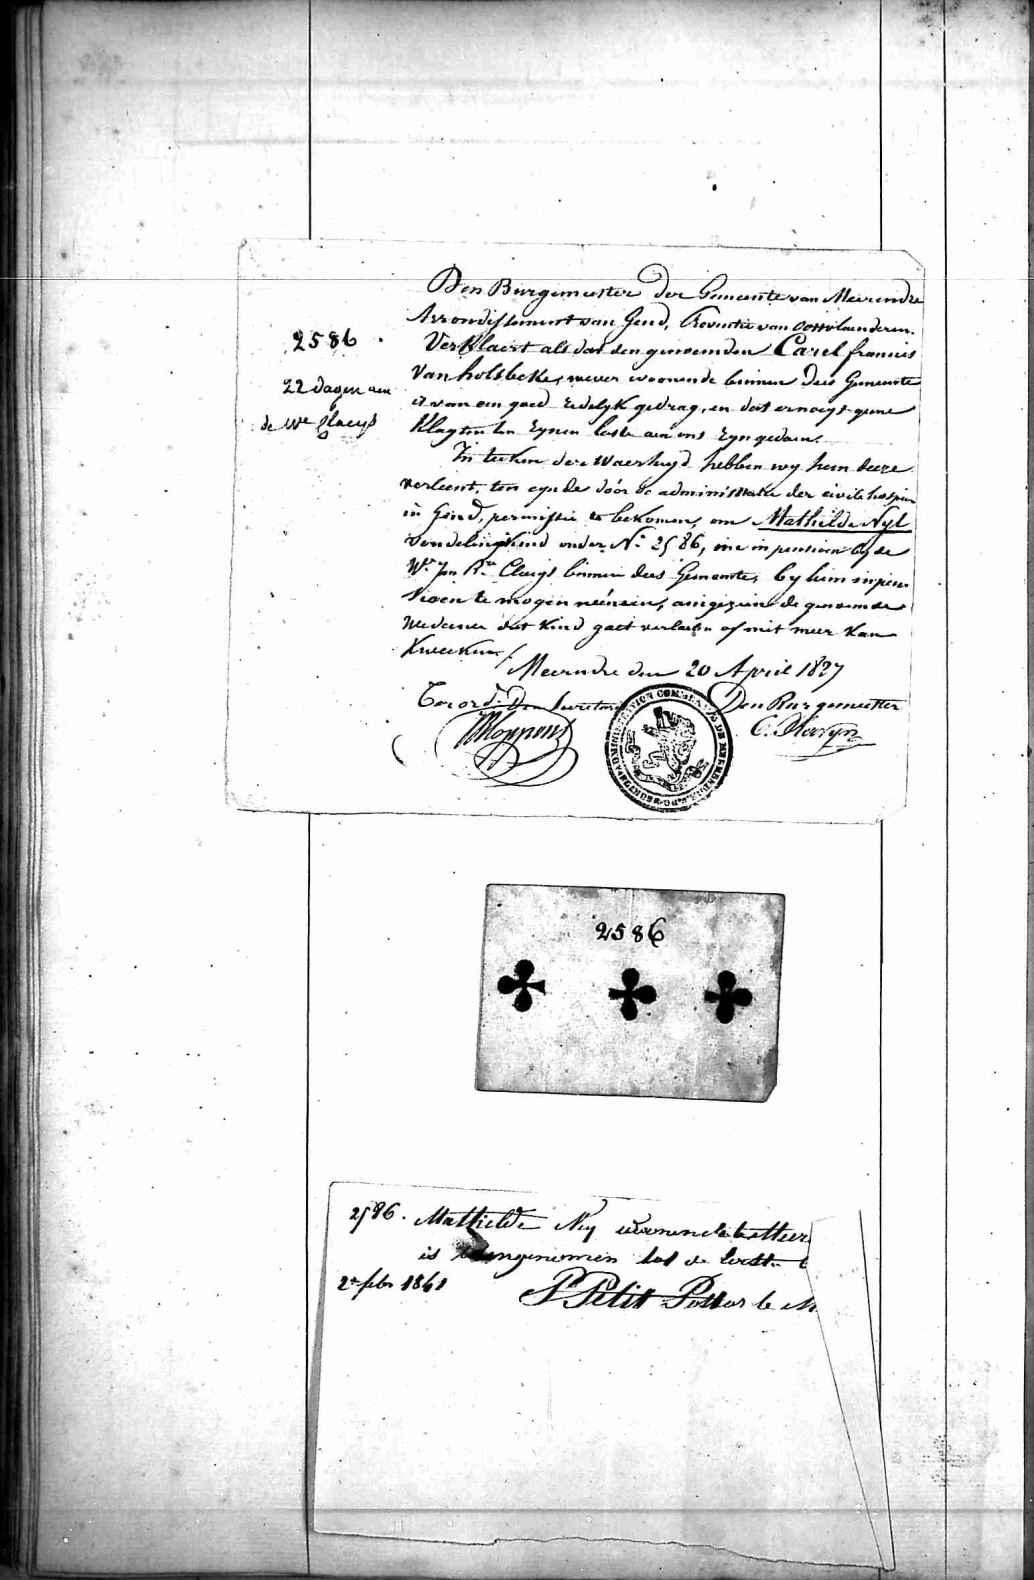 Den Burgemeester der Gemeente van Meerendre
Arrondissement van Gend, Provintie van Oostvlaenderen.
Verklaert als dat den genoemden Carel francies
Van holsbeke, wever woonende binnen dees Gemeente
is van een goed zedelyk gedrag, en dat er noeyt geene
klagten ten zynen laste aen ons zyn gedaen.
In teeken der Waerheyd hebben wy hem deeze
verleent, ten eynde dóór de administratie der civile hospicen
in Gend, permissie te bekomen, om Mathilde Nyl
Vondelingkind onder N.º 2586, in pensioen by de
W.e Jan B.te Claeys binnen dees Gemeente, by hem in pen-
sioen te mogen neémen, aengezien de genoemde
Weduwe dat kind gaet verlaeten of niet meer kan
kweeken.
Meerendre den 20 April 1827
Ter ord.e Den Secretaris
Den Burgemeester
2586.
22 dagen aen
de We Claeys
ADMINISTRATION COMMUNALE DE MEERENDRE
2586
2586. Mathilde Ny woonende te Meer
is aengenomen tot de
2e feb 1841
P Petit Pastor